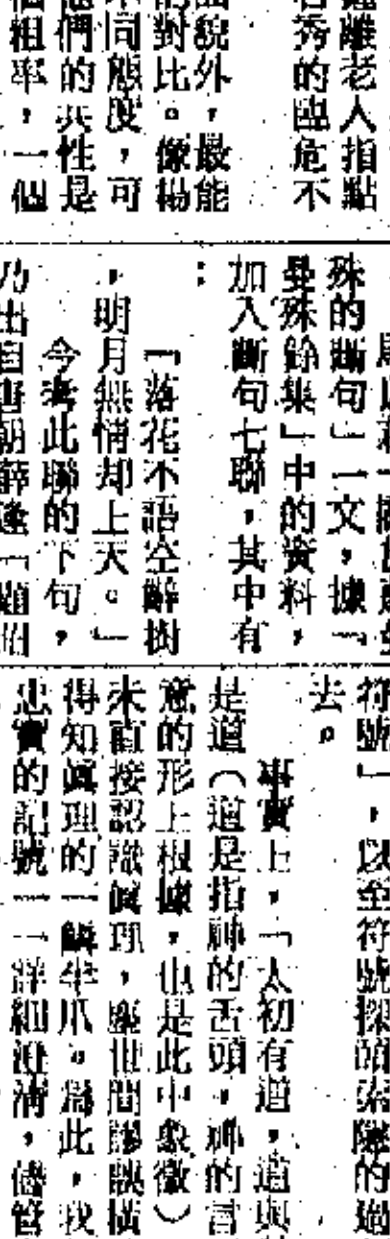 鍾離老人指點
石秀的臨危不
面貌外，最能
的對比。像楊
不同態度，可
他們的共性是
個粗率，一個
殊的斷句」一文，據「
曼殊餘集」中的資料，
加入斷句七聯，其中有
：
「落花不語空辭樹
，明月無情却上天。」
今考此聯的下句，
乃出自唐朝薛逢「題昭
符號」，以至符號探賾索隱的過
去。
事實上，「太初有道，道與
是道（道是指神的舌頭，神的言
意的形上根據，也是此中象徵）
未直接認識眞理，塵世間謬誤橫
得知眞理的一鱗半爪。爲此，我
忠實的記號一一詳細澄清，儘管